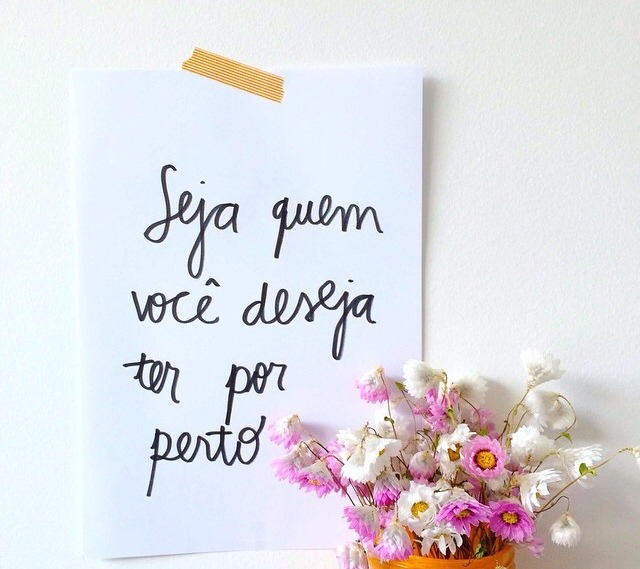 Seja quem
você deseja
ter por
perto